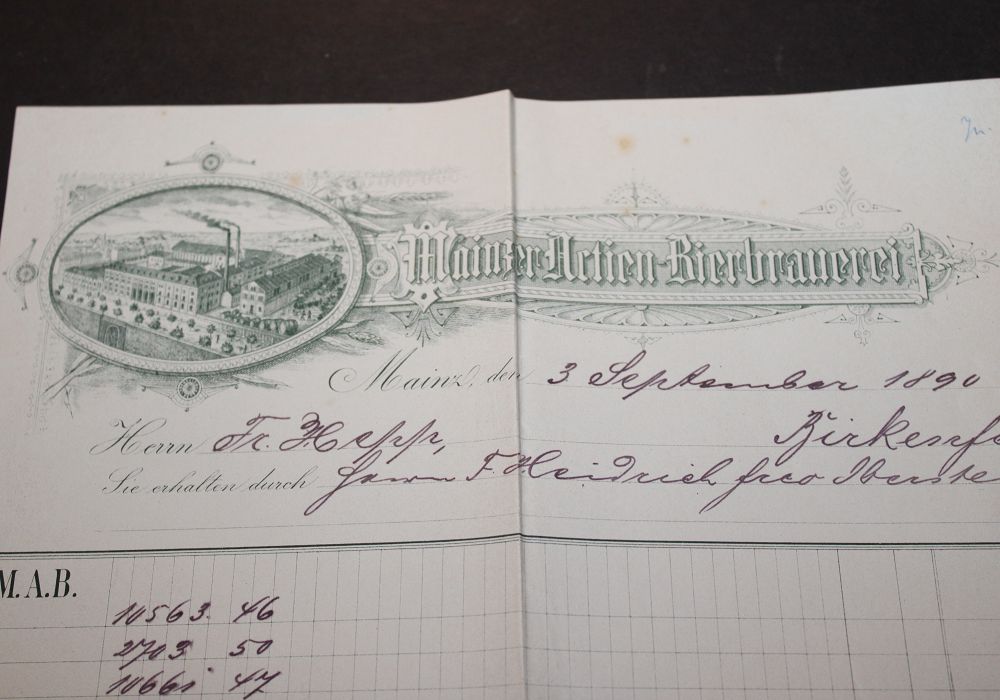 Mainzer Actien-Bierbrauerei
Mainz, den 3 September 1890
Herrn Fr. Hepp,
Sie erhalten durch Herrn F Heidrich frco
M.A.B.
10563. 46
2703 50
10661 47